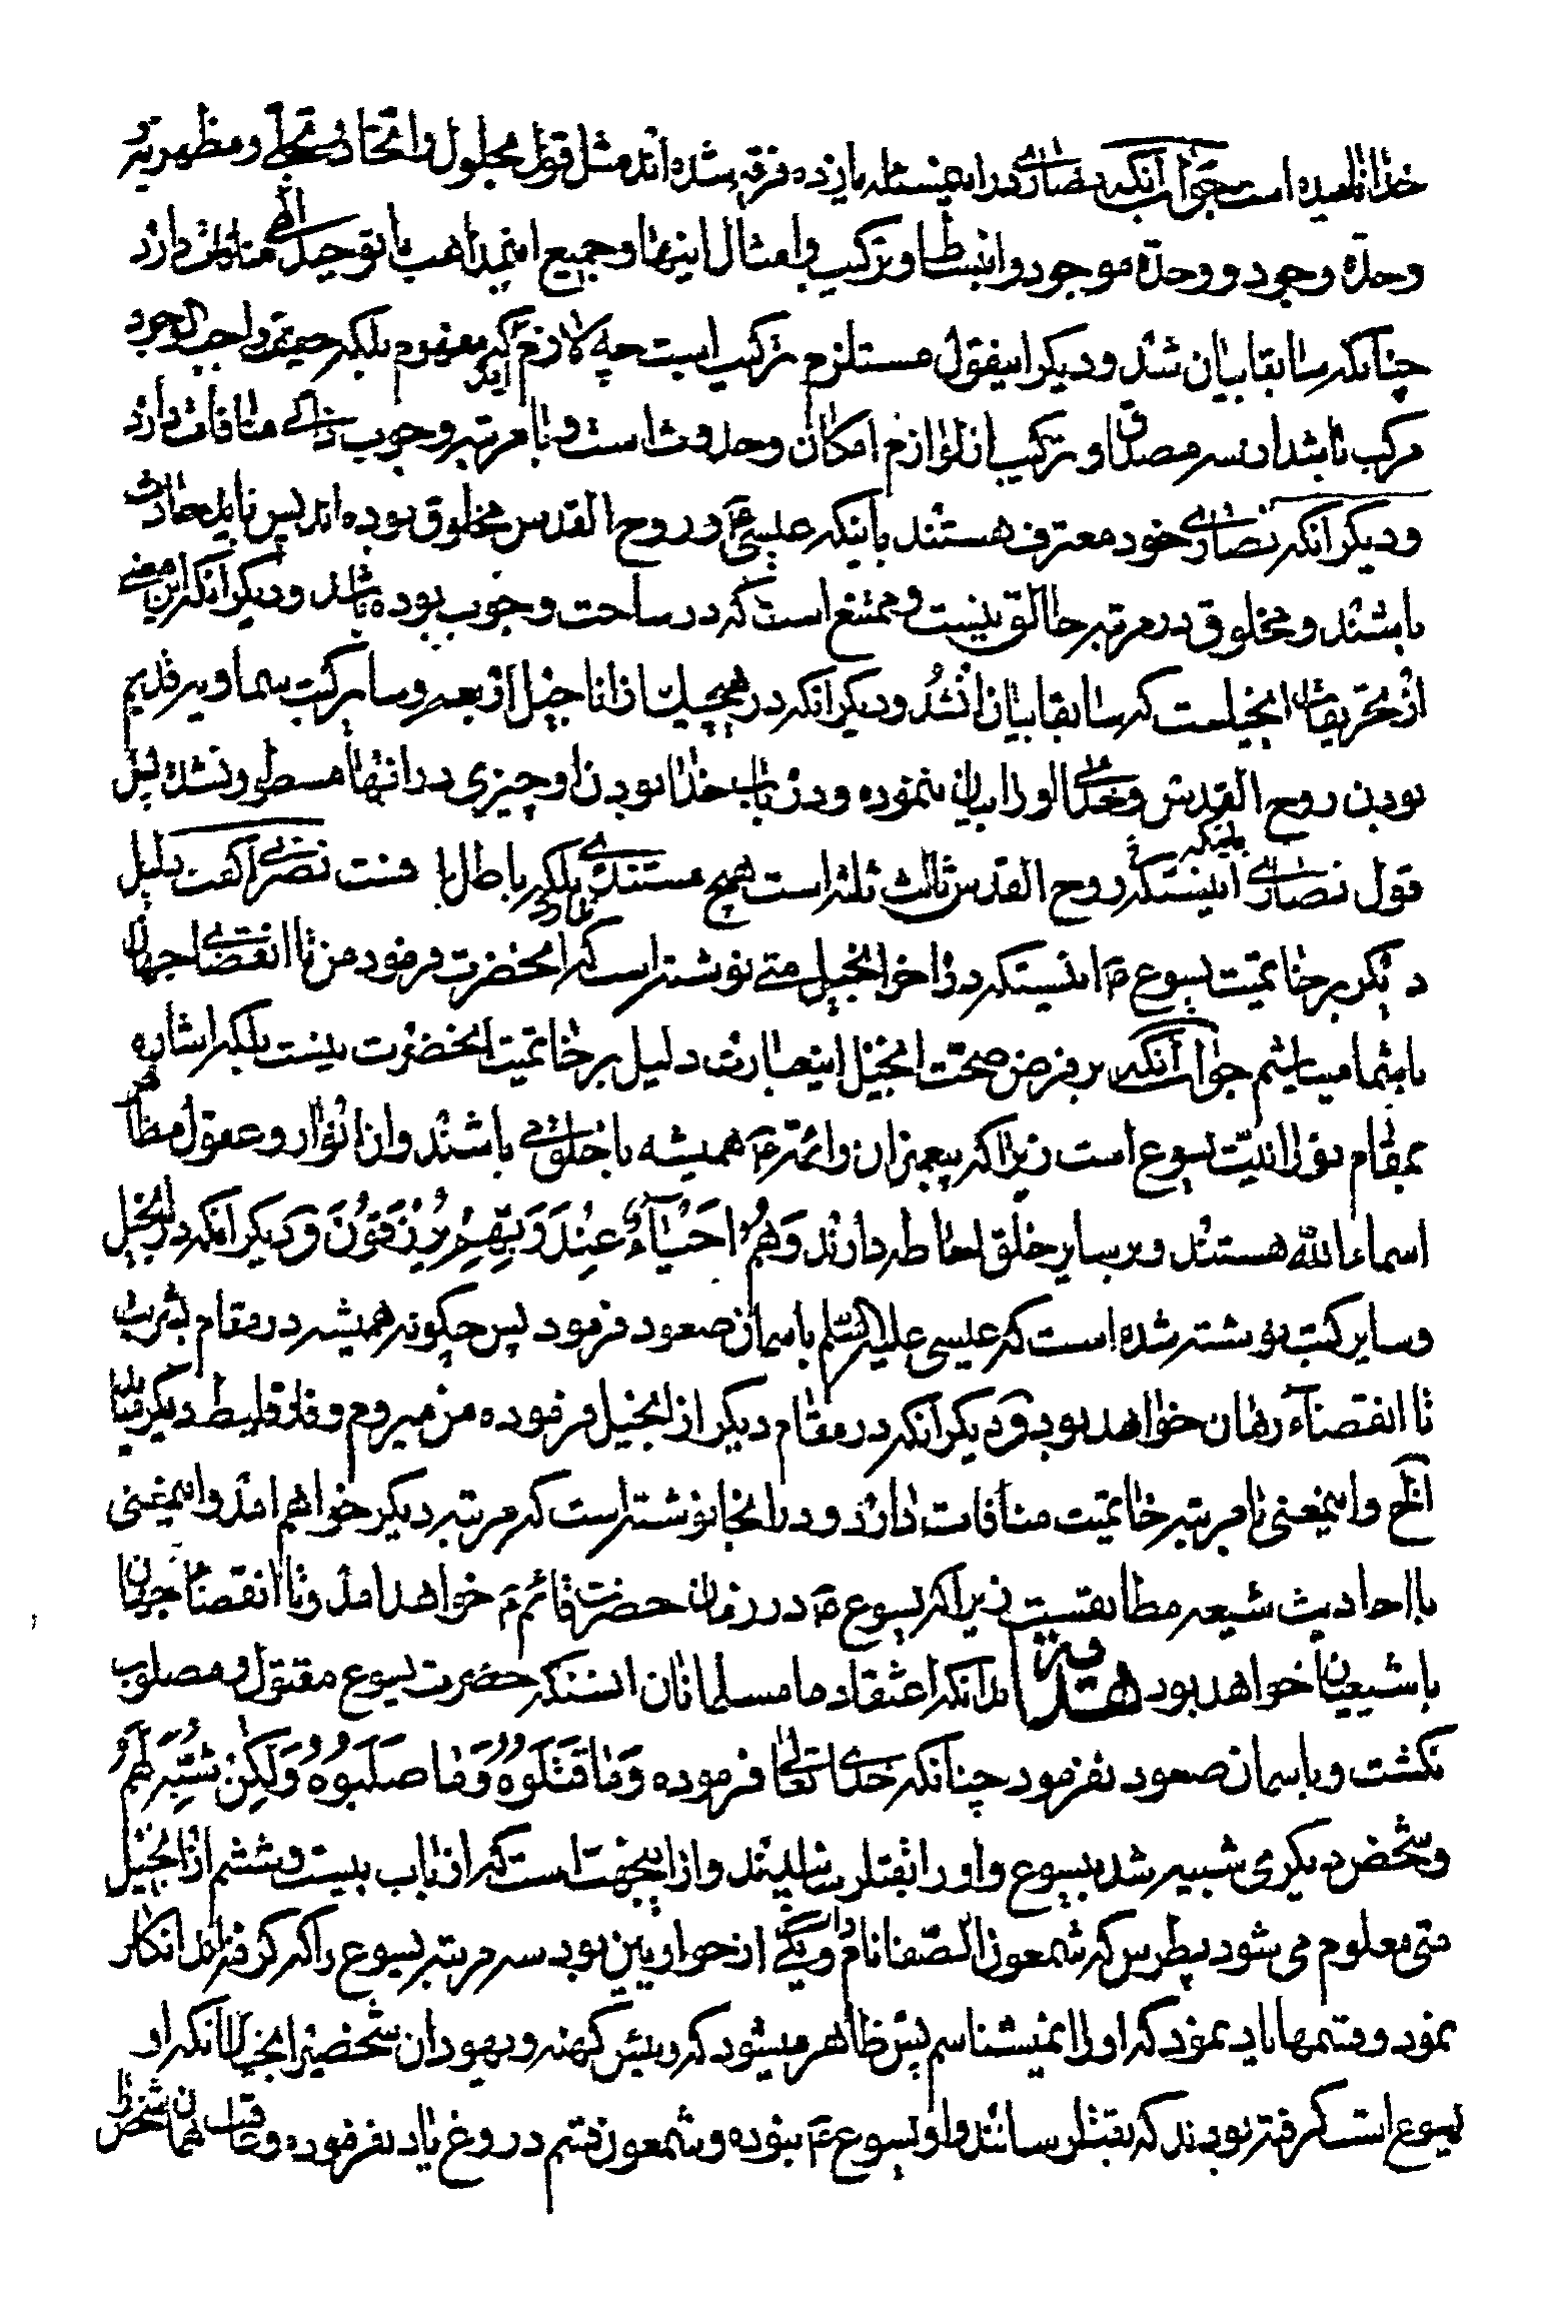 خدا نامیده است جواب آنکه نصاری در این مسئله یازده فرقه شده اند مثل قول بحلول و اتحاد و تجلی و مظهریة و
وحدة وجود و وحدة موجود و انبساط و ترکیب و امثال اینها و جمیع اینمذاهب با توحید الهی منافات دارد
چنانکه سابقا بیان شد و دیگر اینقول مستلزم ترکیب است چه لازم آید که مفهوم بلکه حقیقة واجب الوجود
مرکب باشد از سه مصداق و ترکیب از لوازم امکان و حدوث است و با مرتبه وجوب ذاتی منافات دارد
و دیگر آنکه نصاری خود معترف هستند باینکه عیسی ع و روح القدس مخلوق بوده اند پس باید حادث
باشند و مخلوق در مرتبه خالق نیست و ممتنع است که در ساحت وجوب بوده باشد و دیگر آنکه این معنی
از تحریفات انجیلست که سابقا بیان شد و دیگر آنکه در هیچیک از اناجیل اربعه و سایر کتب سماویه قدیم
بودن روح القدس را بیان ننموده و در باب خدا بودن او چیزی در آنها مسطور نشده پس
قول نصاری باینکه روح القدس ثالث ثلثه است هیچ مستندی ندارد بلکه باطل است نصرانی گفت دلیل
دیگر بر خاتمیت یسوع ع اینستکه در اخر انجیل متی نوشته است که آنحضرت فرمود من تا انقضای جهان
با شما میباشم جواب آنکه بر فرض صحت انجیل اینعبارت دلیل بر خاتمیت آنحضرت نیست بلکه اشاره
بمقام نورانیت یسوع است زیرا که پیغمبران و ائمه ع همیشه با خلق می باشند و ان انوار و عقول مظاهر
اسماء الله هستند و بر سایر خلق احاطه دارند وَهُم اَحیَآءٌ عِندَ رَبِّهِم یُرزَقوُنَ و دیگر آنکه در انجیل
و سایر کتب نوشته شده است که عیسی علیه السلم باسمان صعود فرمود پس چگونه همیشه در مقام بشریت
تا انقضاء زمان خواهد بود و دیگر آنکه در مقام دیگر از انجیل فرموده من میروم و فارقلیط دیگر میاید
الخ و اینمعنی با مرتبه خاتمیت منافات دارد و در انجا نوشته است که مرتبه دیگر خواهم امد و اینمعنی
با احادیث شیعه مطابقست زیرا که یسوع ع در زمان حضرت قائم ع خواهد امد و تا انقضاء جهان
با شیعیان خواهد بود هدایة بدانکه اعتقاد ما مسلمانان اینستکه حضرت یسوع مقتول و مصلوب
نکشت و باسمان صعود بفرمود چنانکه خدای تعالی فرموده وَمٰا قَتَلوُهُ وَمٰا صَلَبوُهُ وَلٰکِن شُبِّهَ لَهُم
و شخص دیگری شبیه شد بیسوع و او را بقتل رسانیدند و از اینجهت است که از باب بیست و ششم از انجیل
متی معلوم می شود پطرس که شمعون الصفا نام دارد و یکی از حواریین بود سه مرتبه یسوع را که گرفته اند انکار
نمود و قسمها یاد نمود که او را نمیشناسم پس ظاهر میشود که رئیس کهنه و یهودان شخصیرا بخیال انکه او
یسوع است گرفته بودند که بقتل رسانند و او یسوع ع نبوده و شمعون قسم دروغ یاد نفرموده و عاقبت همان شخص را